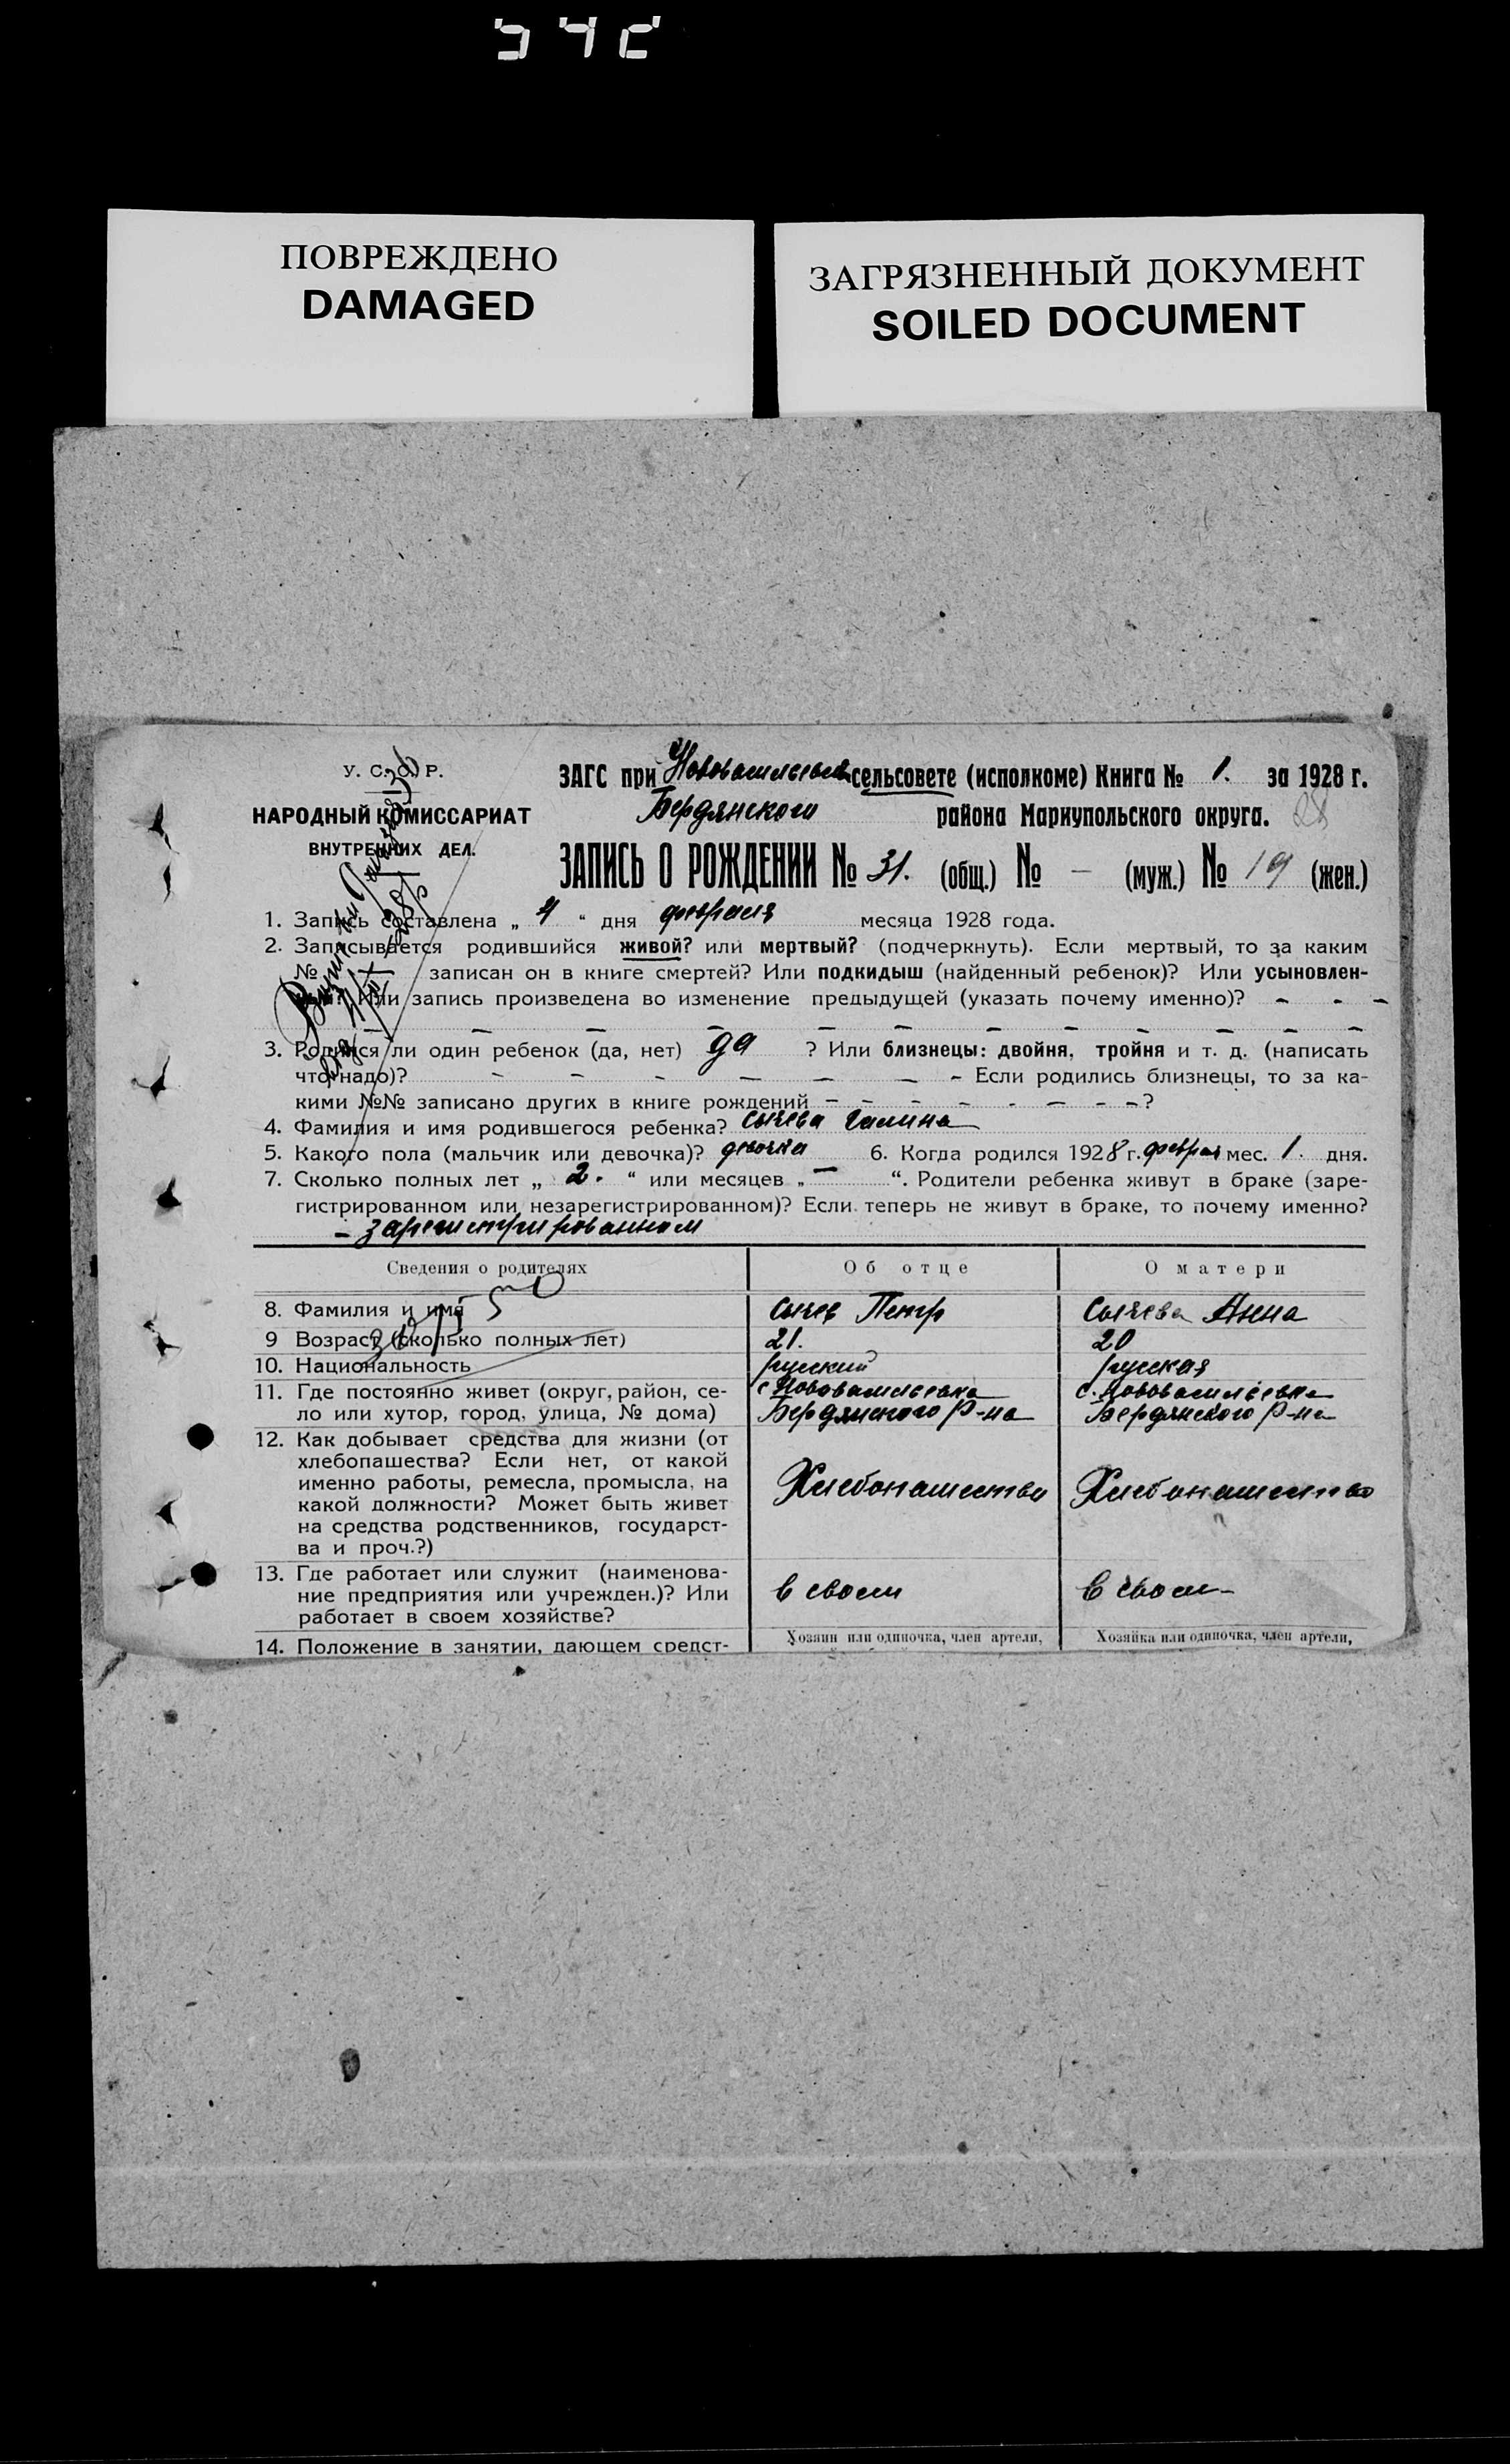 ПОВРЕЖДЕНО
DAMAGED
ЗАГРЯЗНЕННЫЙ ДОКУМЕНТ
SOILED DOCUMENT
У. С. С. Р.
НАРОДНЫЙ КОМИССАРИАТ
ВНУТРЕННИХ ДЕЛ.
ЗАГС при Нововасильевск сельсовете (исполкоме) Книга № 1. за 1928 г.
Бердянского района Мариупольского округа. 28
ЗАПИСЬ О РОЖДЕНИИ № 31. (общ.) № – (муж.) № 19 (жен.)
1. Запись составлена „ 4 “ дня февраля месяца 1928 года.
2. Записывается родившийся живой? или мертвый? (подчеркнуть). Если мертвый, то за каким
№ записан он в книге смертей? Или подкидыш (найденный ребенок)? Или усыновлен-
ный? Или запись произведена во изменение предыдущей (указать почему именно)? – – –
– – – – – – – – – – –
3. Родился ли один ребенок (да, нет) да ? Или близнецы: двойня, тройня и т. д. (написать
что надо)? – – – – – – – Если родились близнецы, то за ка-
кими №№ записано других в книге рождений – – – – – – – –?
4. Фамилия и имя родившегося ребенка? Сычева Галина
5. Какого пола (мальчик или девочка)? девочка 6. Когда родился 1928 г. февраля мес. 1. дня.
7. Сколько полных лет „ 2. “ или месяцев „ – “. Родители ребенка живут в браке (заре-
гистрированном или незарегистрированном)? Если теперь не живут в браке, то почему именно?
– зарегистрированном
Сведения о родителях Об отце О матери
8. Фамилия и имя Сычев Петр Сычева Анна
9 Возраст (сколько полных лет) 21. 20
10. Национальность русский русская
11. Где постоянно живет (округ, район, се- с Нововасильевка с. Нововасильевка
ло или хутор, город, улица, № дома) Бердянского Р-на Бердянского Р-на
12. Как добывает средства для жизни (от
хлебопашества? Если нет, от какой
именно работы, ремесла, промысла, на Хлебопашество Хлебопашество
какой должности? Может быть живет
на средства родственников, государст-
ва и проч.?)
13. Где работает или служит (наименова-
ние предприятия или учрежден.)? Или в своем в своем
работает в своем хозяйстве?
14. Положение в занятии, дающем средст- Хозяин или одиночка, член артели, Хозяйка или одиночка, член артели,